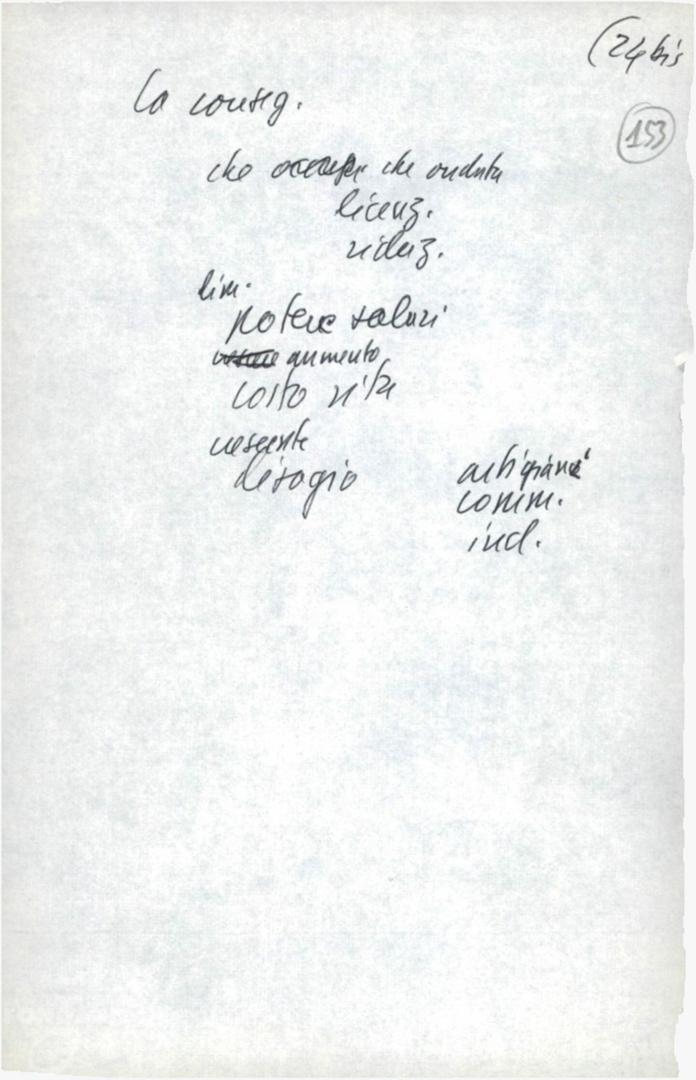 (24 bis
153
la conseg.
che che ondata
licenz.
riduz.
lim.
potere salari
aumento
costo vita
crescente
disagio
artigiani
comm.
ind.